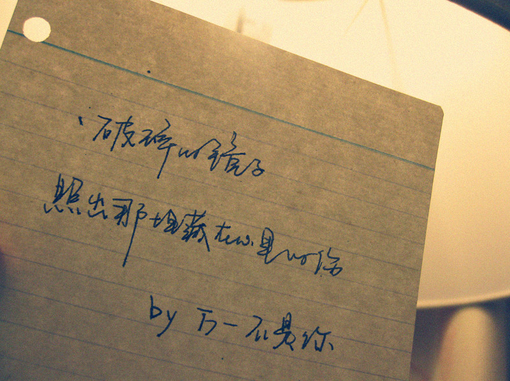 破碎的镜子
照出那埋藏在心里的伤
by 万一不是你